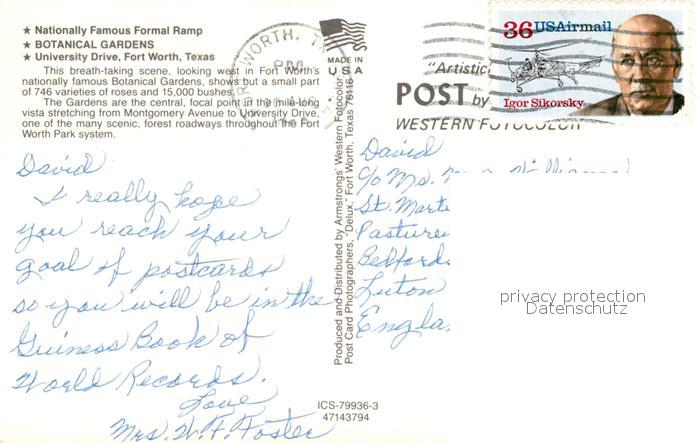 ★ Nationally Famous Formal Ramp
★ BOTANICAL GARDENS
★ University Drive, Fort Worth, Texas
This breath-taking scene, looking west in Fort Worth's
nationally famous Botanical Gardens, shows but a small part
of 746 varieties of roses and 15,000 bushes.
The Gardens are the central, focal point in the mile-long
vista stretching from Montgomery Avenue to University Drive,
one of the many scenic, forest roadways throughout the Fort
Worth Park system.
David
I really hope
you reach your
goal of postcards
so you will be in the
Guiness Book of
World Records.
Love
Mrs. W. F. Foster
WORTH, T
PM
MADE IN
USA
Produced and Distributed by Armstrongs' Western Fotocolor
Post Card Photographers, "Delux," Fort Worth, Texas 76116
ICS-79936-3
47143794
36 USAirmail
Igor Sikorsky
"Artistic
POST by
WESTERN FOTOCOLOR
David
c/o Ms.
St. Marte
Pasture
Bedfords
Luton
Engla
privacy protection
Datenschutz